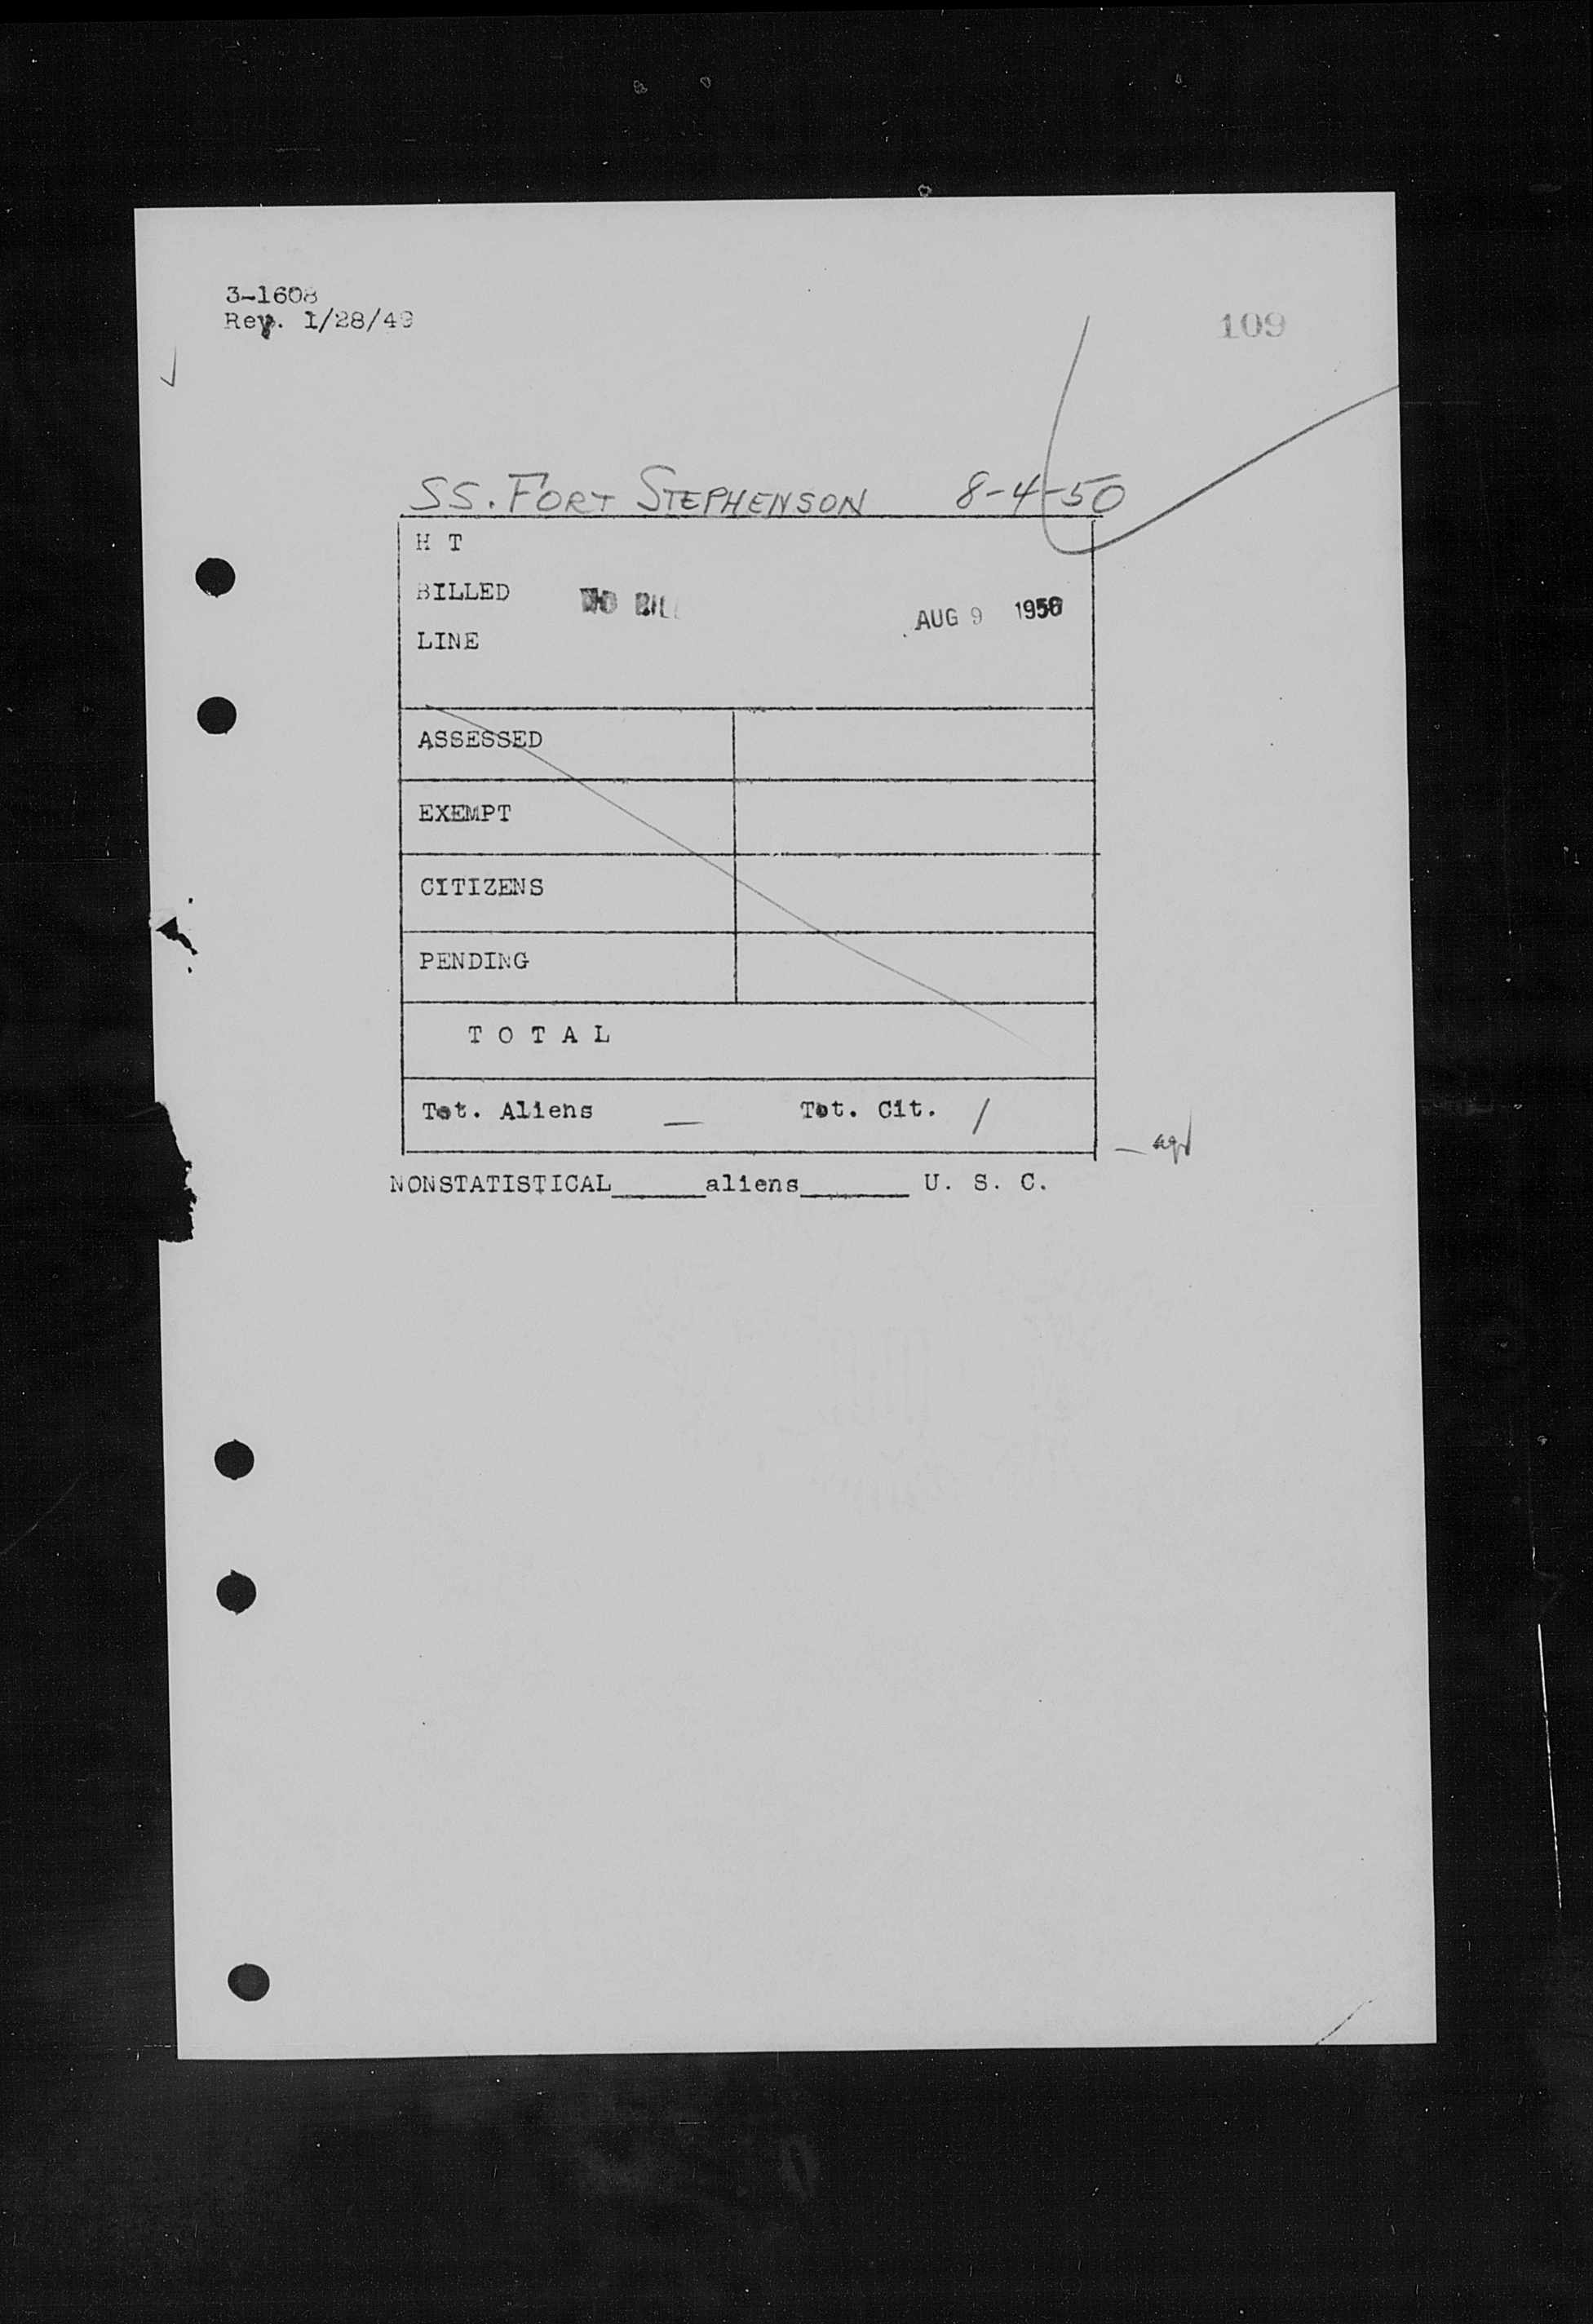 3-1608
Rev. 1/28/49
109
SS. FORT STEPHENSON 8-4-50
H T
BILLED NO BILL AUG 9 1950
LINE
ASSESSED
EXEMPT
CITIZENS
PENDING
T O T A L
Tot. Aliens — Tot. Cit. /
NONSTATISTICAL______aliens_______ U. S. C.